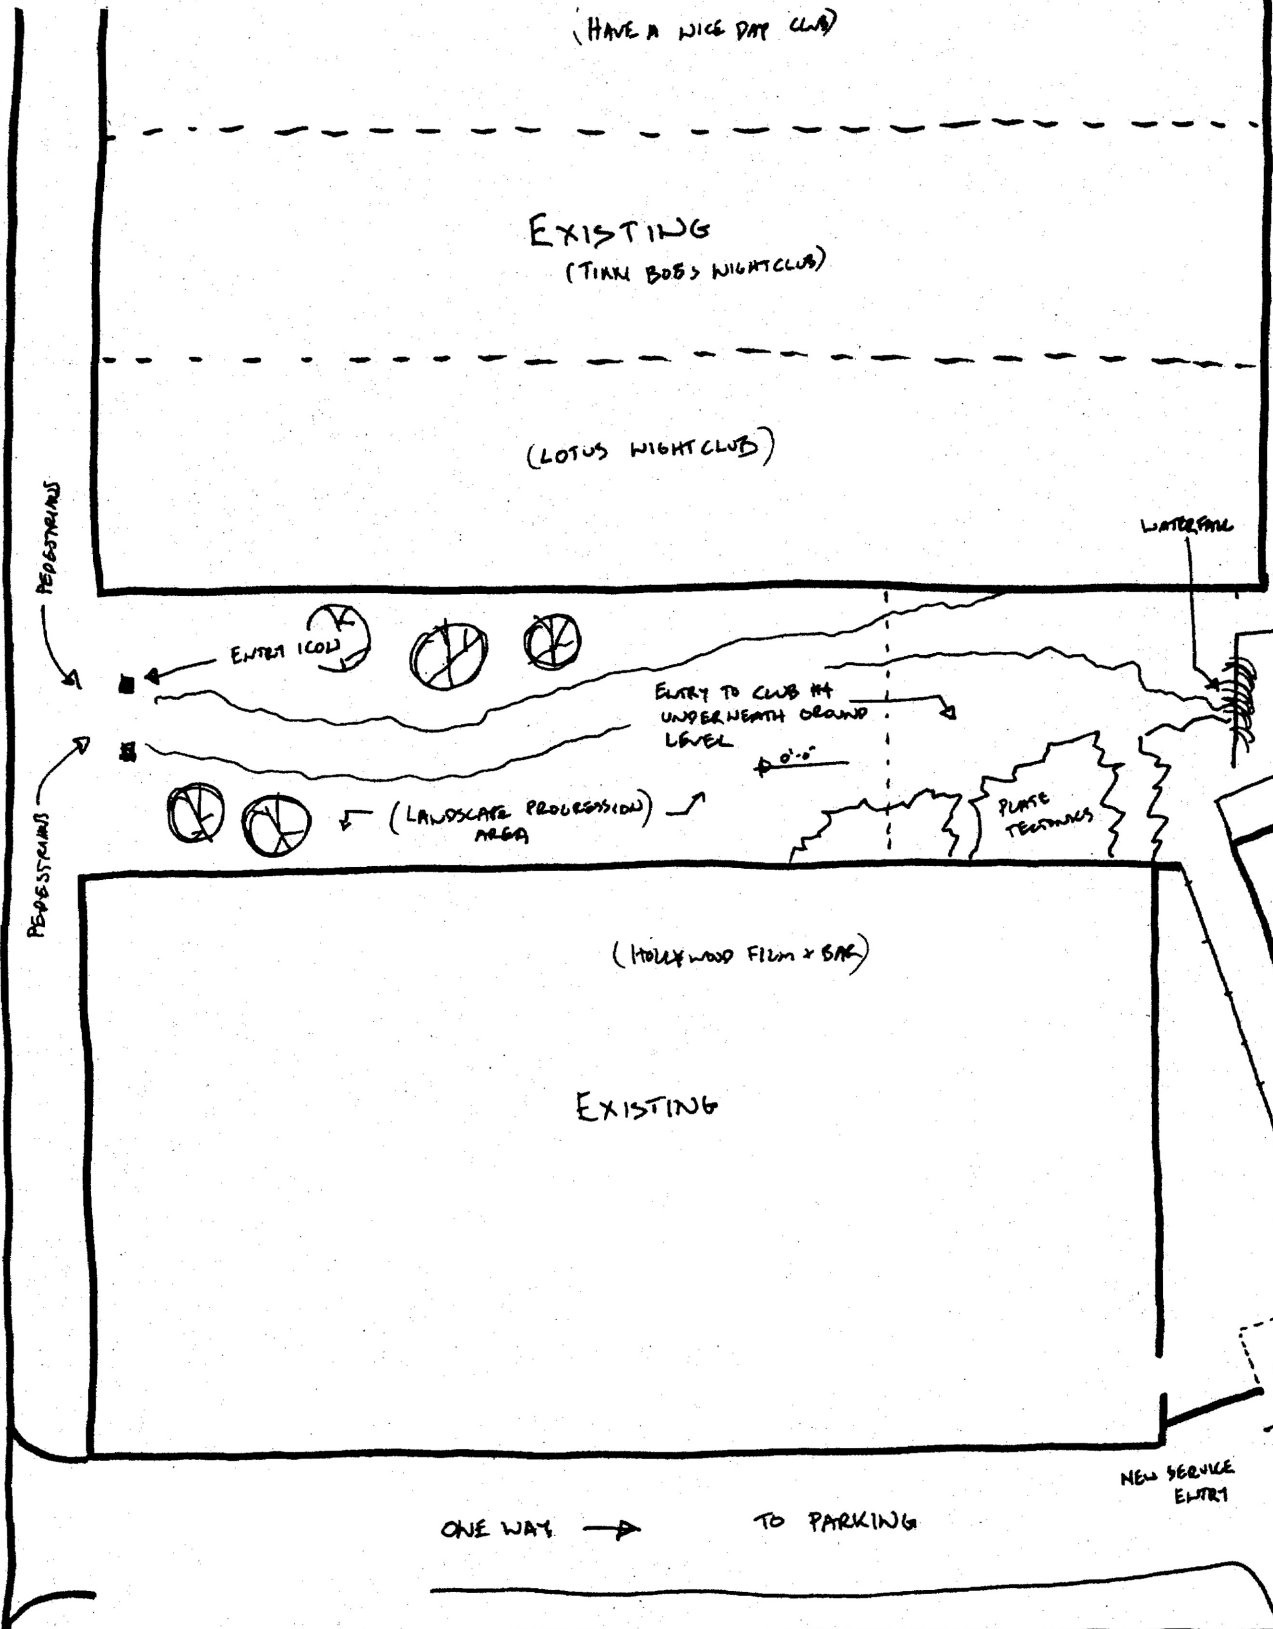 (HAVE A NICE DAY CLUB)
EXISTING
(TIKKI BOB'S NIGHTCLUB)
(LOTUS NIGHTCLUB)
PEDESTRIANS
WATERFALL
ENTRY ICON
ENTRY TO CLUB #4
UNDERNEATH GROUND
LEVEL
0'-0"
(LANDSCAPE PROGRESSION)
AREA
PLATE
TECTONICS
PEDESTRIANS
(HOLLYWOOD FILM & BAR)
EXISTING
NEW SERVICE
ENTRY
ONE WAY → TO PARKING